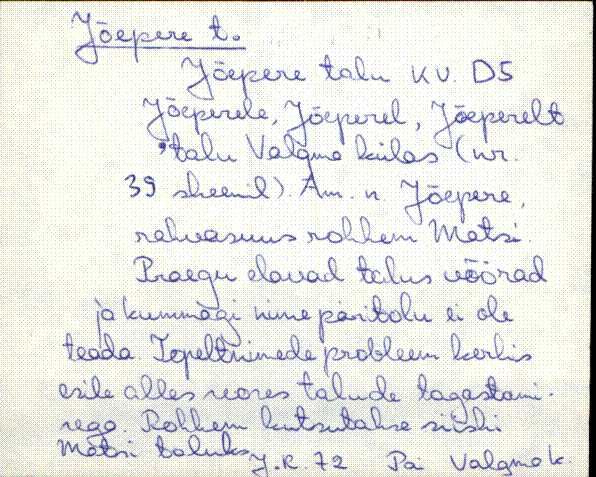 Jõepere t.
Jõepere talu KV. D5
Jõeperele, Jõeperel, Jõeperelt
talu Valgma külas (nr.
39 skeemil). Am. n. Jõepere,
rahvasuus rohkem Matsi.
Praegu elavad talus võõrad
ja kummagi nime päritolu ei ole
teada. Topeltnimede probleem kerkis
esile alles seoses talude tagastami-
sega. Rohkem kutsutakse siiski
Matsi taluks
J.R. 72 Pai Valgma k.